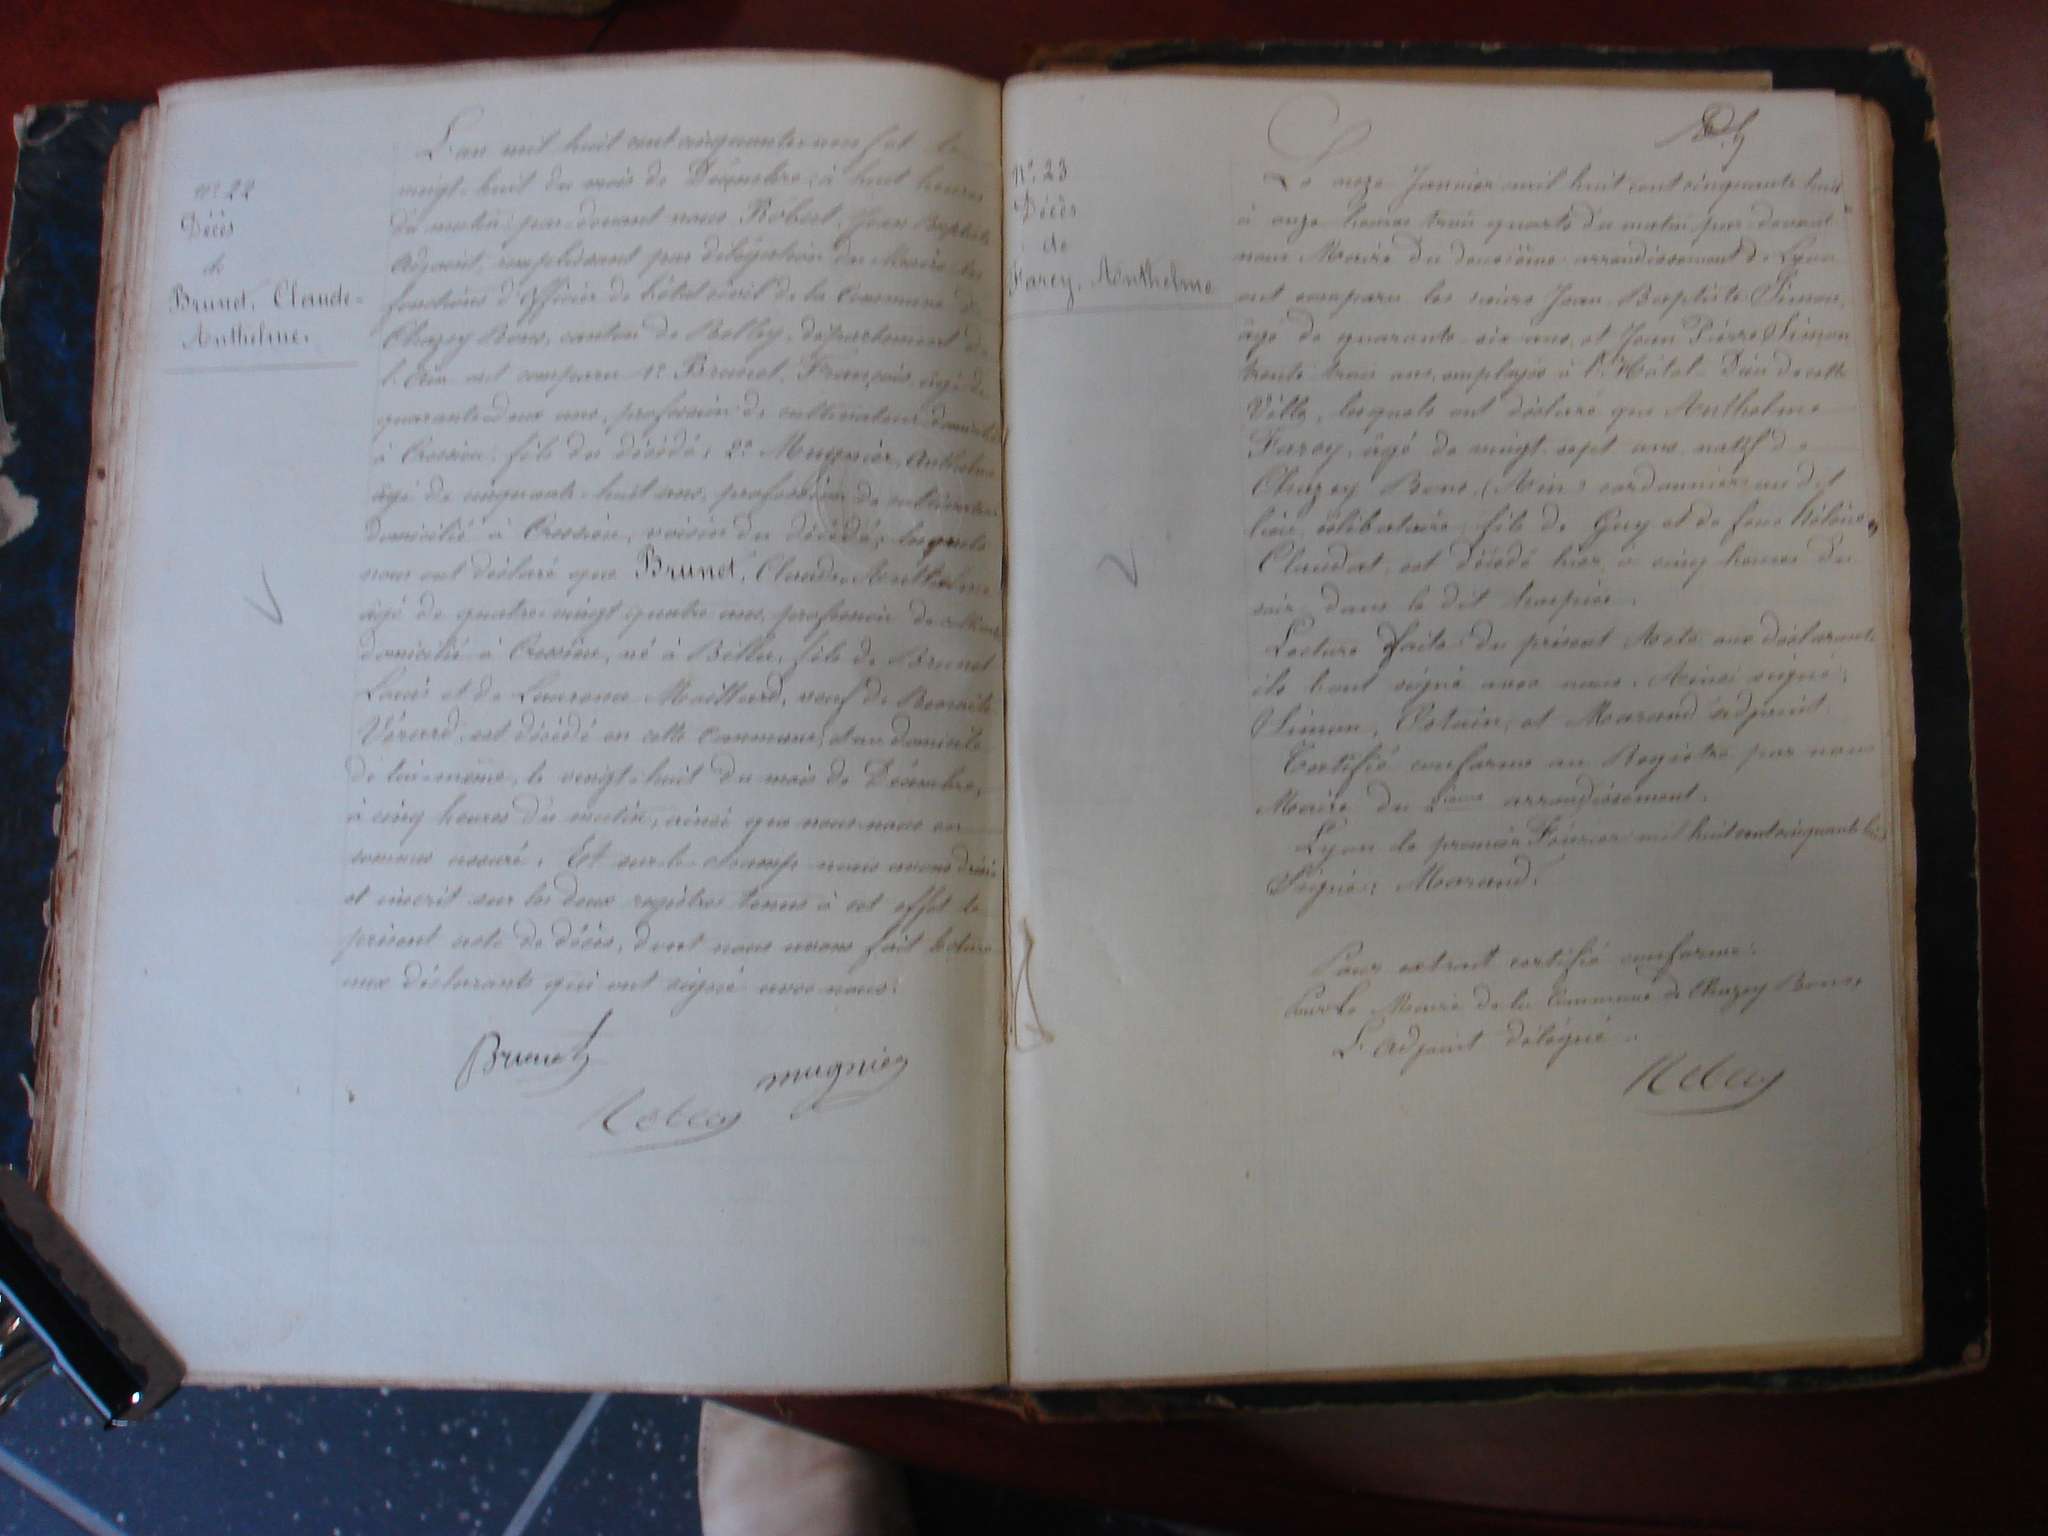 N° 22
Décès
de
Brunet, Claude-
Anthelme.
L'an mil huit cent cinquante neuf et le
vingt-huit du mois de Décembre, à huit heures
du matin, par devant nous Robert, Jean Baptiste
Adjoint, remplissant par délégation du Maire, les
fonctions d'Officier de l'état civil de la Commune de
Chazey Bons, canton de Belley, département de
l'Ain ont comparu 1° Brunet, François, âgé de
quarante deux ans, profession de cultivateur, domicilié
à Cressieu, fils du décédé; 2° Mugnier, Anthelme
âgé de cinquante-huit ans, profession de cultivateur
domicilié à Cressieu, voisin du décédé; lesquels
nous ont déclaré que Brunet, Claude-Anthelme
âgé de quatre-vingt quatre ans, profession de
domicilié à Cressieu, né à fils de Brunet
Louis et de Laurence Maillard, veuf de Benoite
Vérard, est décédé en cette Commune, et au domicile
de lui-même, le vingt-huit du mois de Décembre,
à cinq heures du matin, ainsi que nous nous en
sommes assuré. Et sur le champ nous avons dressé
et inscrit sur les deux registres tenus à cet effet le
présent acte de décès, dont nous avons fait lecture
aux déclarants qui ont signé avec nous.
Brunet
mugnier
Robert
N° 23
Décès
de
Farcy, Anthelme
Le onze Janvier mil huit cent cinquante huit
à onze heures trois quarts du matin, par devant
nous Maire du deuxième arrondissement de Lyon
ont comparu les sieurs Jean Baptiste Simon,
âgé de quarante-six ans, et Jean Pierre Simon
trente trois ans, employés à l'Hôtel-Dieu de cette
Ville, lesquels ont déclaré que Anthelme
Farcy, âgé de vingt sept ans, natif de
Chazey Bons, (Ain) cordonnier au dit
lieu, célibataire, fils de Guy et de feue Hélène
Claudat, est décédé hier, à cinq heures du
soir, dans le dit hospice.
Lecture faite du présent Acte aux déclarants
ils l'ont signé avec nous. Ainsi signé:
Simon, et Marand adjoint.
Certifié conforme au Registre par nous
Maire du 2ième arrondissement.
Lyon le premier Février mil huit cent cinquante huit
Signé: Marand.
Pour extrait certifié conforme:
Pour le Maire de la Commune de Chazey Bons,
L'Adjoint délégué.
Robert